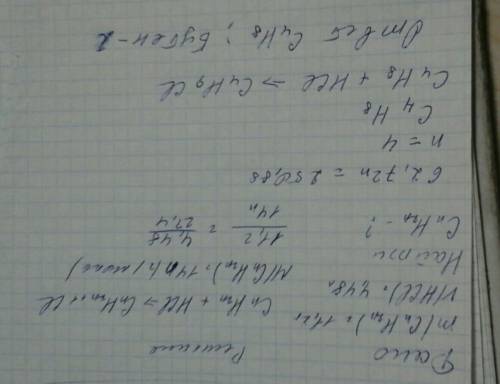 Дано Решение
m(CnH2n) = 11,2г CnH2n + HCl → CnH2n+1Cl
V(HCl) = 4,48л M(CnH2n) = 14n
Найти
CnH2n - ? 11,2/14n = 4,48/22,4
62,72n = 250,88
n = 4
C4H8
C4H8 + HCl → C4H9Cl
Ответ C4H8; Бутен-